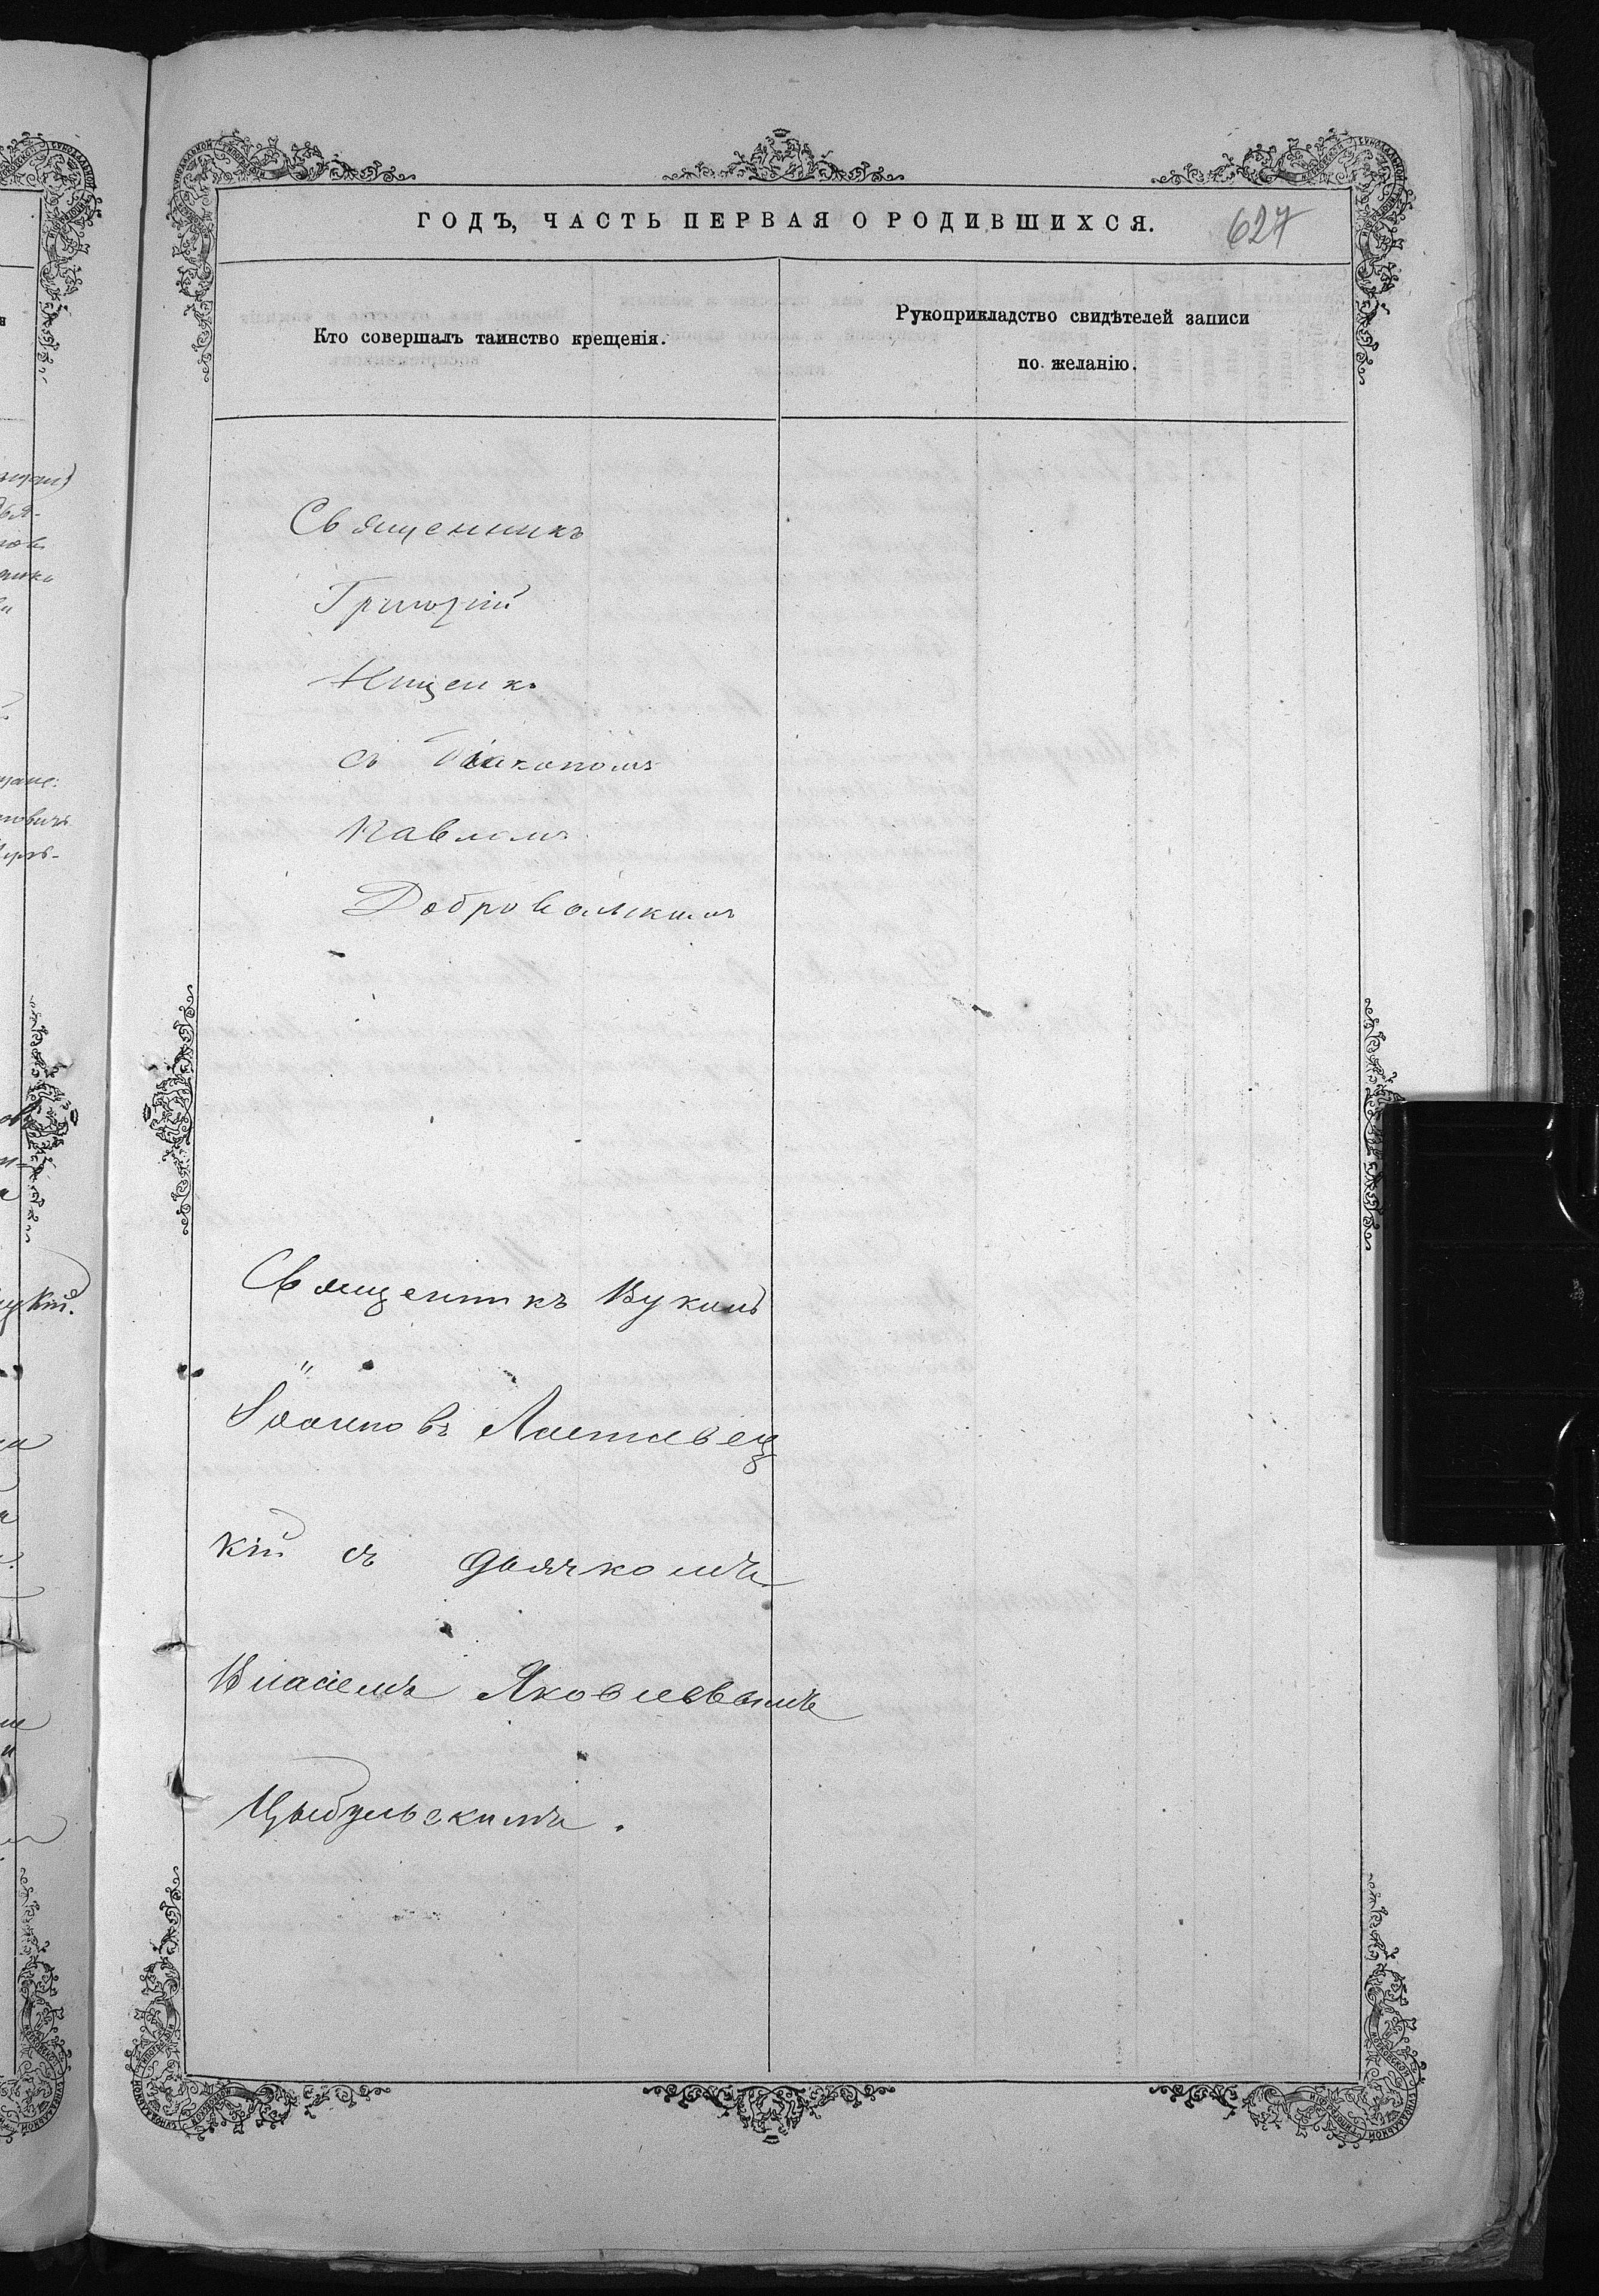 ГОДЪ, ЧАСТЬ ПЕРВАЯ О РОДИВШИХСЯ.
627
Кто совершалъ таинство крещенія.
Рукоприкладство свидѣтелей записи
по желанію.
Священникъ
Григорій
съ Діакономъ
Павломъ
Добровольскимъ
Священникъ Вукилъ
Іоанновъ Лаптевец
кій съ дьячкомъ
Власіемъ Яковлевымъ
Цыбульскимъ.